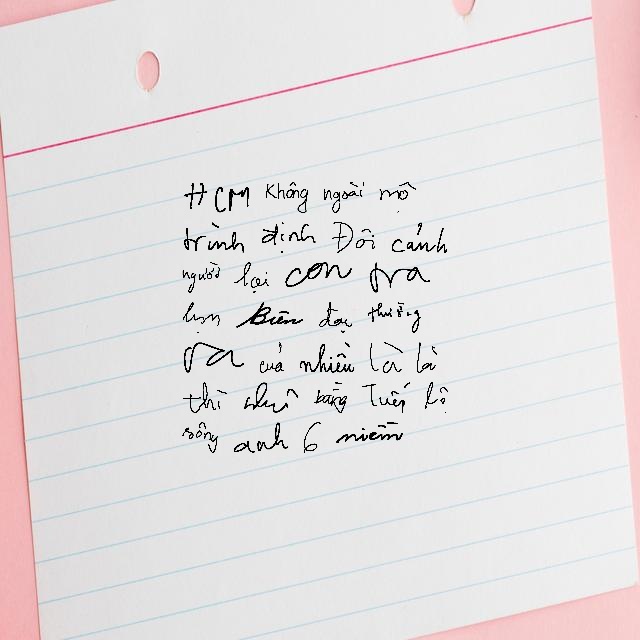 HCM Không ngoài mô
trình định Đôi cảnh
người lại con tra
hụn Biên đại thường
ra của nhiều là là
thì như bằng Tuến hộ
sông anh 6 niềm